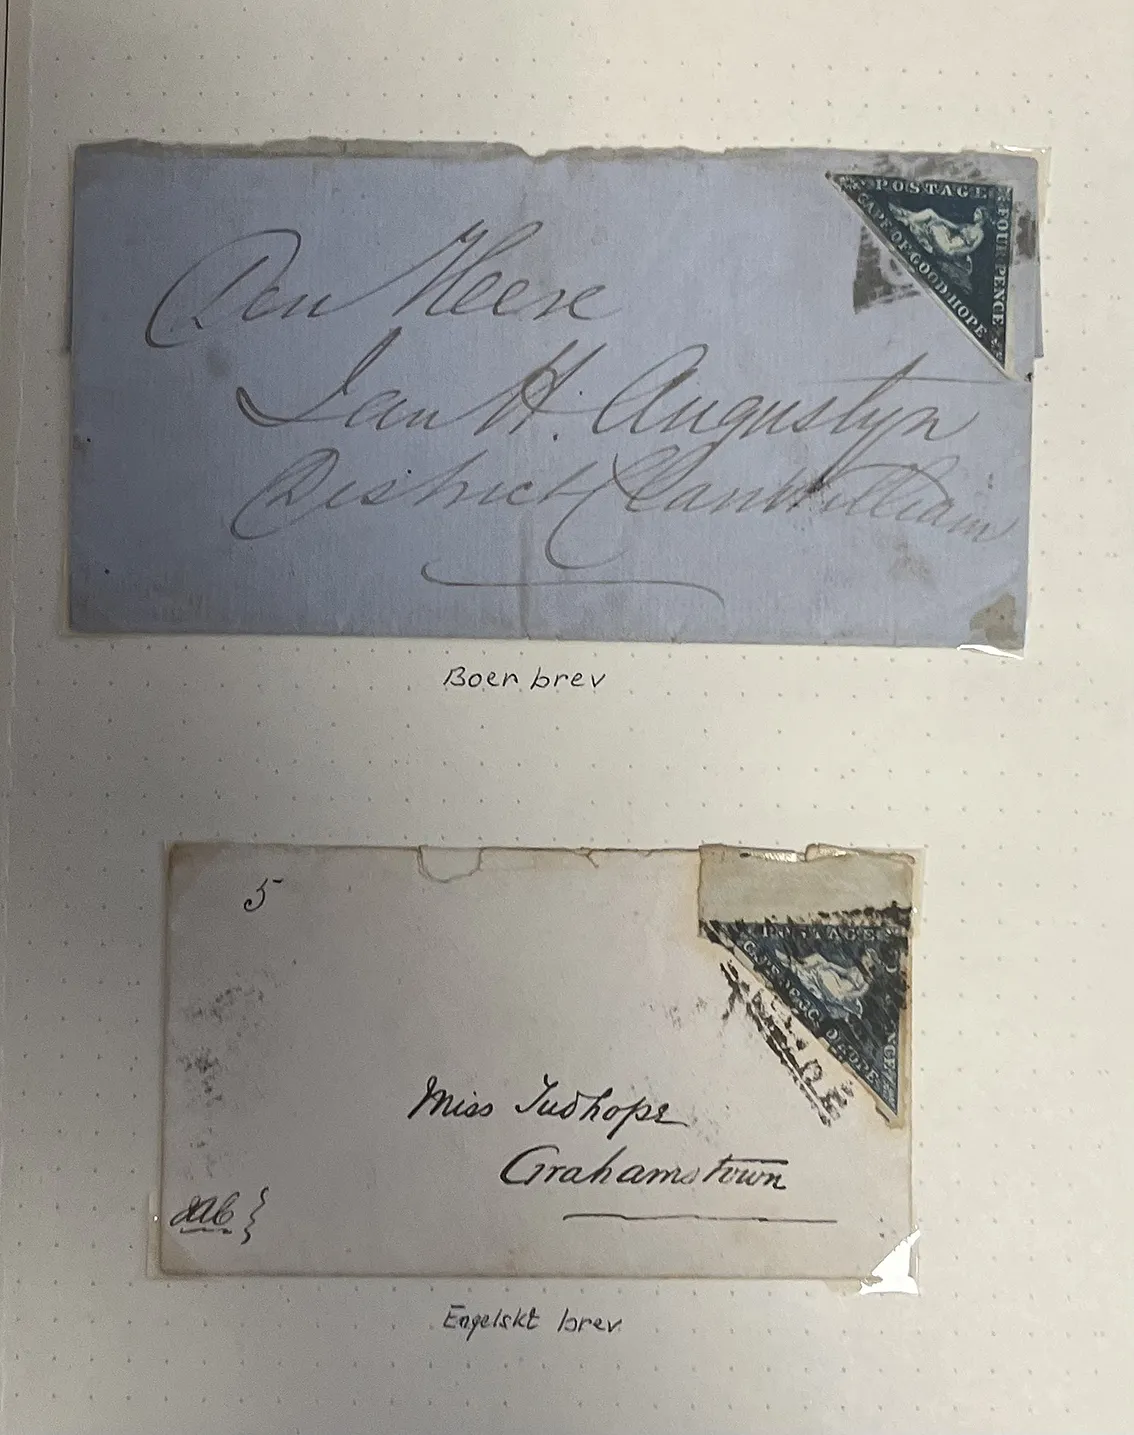 POSTAGE
FOUR PENCE
CAPE OF GOOD HOPE
Den Heere
Jan H. Augustyn
District ClanWilliam
Boer brev
5
POSTAGE
Miss Tudhope
Grahamstown
Engelskt brev